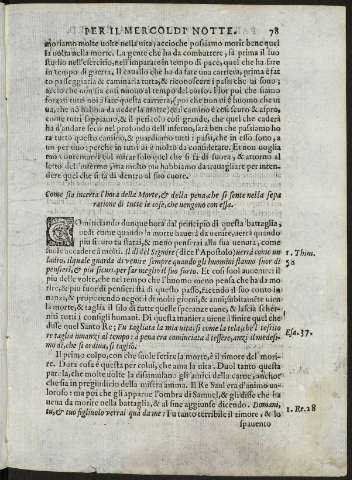 PER IL MERCOLDI NOTTE. 78
moriamo molte uolte nella uita; accioche possiamo morir bene quel
la uolta nella morte. La gente che ha da combattere, fa prima il suo
studio nell'esercitio, nell'imparare in tempo di pace, quel che ha fare
in tempo di guerra. Il cauallo che ha da fare una carriera, prima è fat
to passeggiarla & caminarla tutta, & riconoscere i passi che ui sono;
accioche non sia cosi nuouo al tempo del corso. Hor poi che siamo
forzati tutti noi à fare questa carriera, (poi che non ui è huomo che ui
ua, che nò habbia da ueder la morte) & il camino è cosi scuro & aspro,
come tutti sappiamo, & il pericolo cosi grande, che quel che caderà
ha d'andare seco nel profondo dell'inferno, sarà ben che passiamo ho
ra tutto questo camino, & guardiamo tutti i passi, che in esso sono, a
un per uno; perche in tutti ui è molto da considerare. Et non uoglia
mo contentarci qui mirar solo quel che si fa di fuora, & attorno al
letto dell'infermo, ma anche habbiamo da trauagliare per inten-
dere quel che si fa dentro al suo cuore.
Come sia incerta l'hora della Morte, & della pena, che si sente nella sepa
ratione di tutte le cose, che uengono con essa.
COminciando dunque hora dal principio di questa battaglia,
uedi come quando la morte hauerà da uenire, uerrà quando
più sicuro tu starai, & meno penserai alla sua uenuta, come
suole accadere à molti. Il dì del Signore (dice l'Apostolo) uerrà come un
1. Thim.
ladro, il quale guarda di uenire sempre quando gli huomini stanno fuor di
5 a
pensieri, & più sicuri, per far meglio il suo furto. Et cosi suol auuenire il
più delle uolte, che nel tempo che l'huomo meno pensa che ha da mo-
rire, & più fuor di pensieri stà di questo passo, facendo il suo conto in
nanzi, & proponendo negotij di molti giorni, & anni, subitamẽte uien
la morte, & taglia il filo di tutte quelle speranze uane, & lascia scher-
niti tutti i consigli humani. Di questa maniera uiene il fine quel che
disse quel Santo Re; Fu tagliata la mia uita; si come la tela, che'l tessito
Esa. 37.
re taglia innanzi al tempo: à pena era cominciata à tessere, anzi al medesi-
mo dì, che si ordiua, si tagliò.
Il primo colpo, con che suole ferire la morte, è il timore del mori-
re. Dura cosa è questa per colui, che ama la uita. Duol tanto questa
parola, che molte uolte la dissimulano gli amici della carne, anchor
che sia in pregiuditio della misera anima. Il Re Saul era d'animo ua-
loroso: ma poi che gli apparue l'ombra di Samuel, & gli disse che ha
ueua da morire nella battaglia, & al fine aggiunse dicendo. Domani,
tu, & tuo figliuolo uerrai quà da me: Fu tanto terribile il timore, & lo
1. Re. 28
spauento